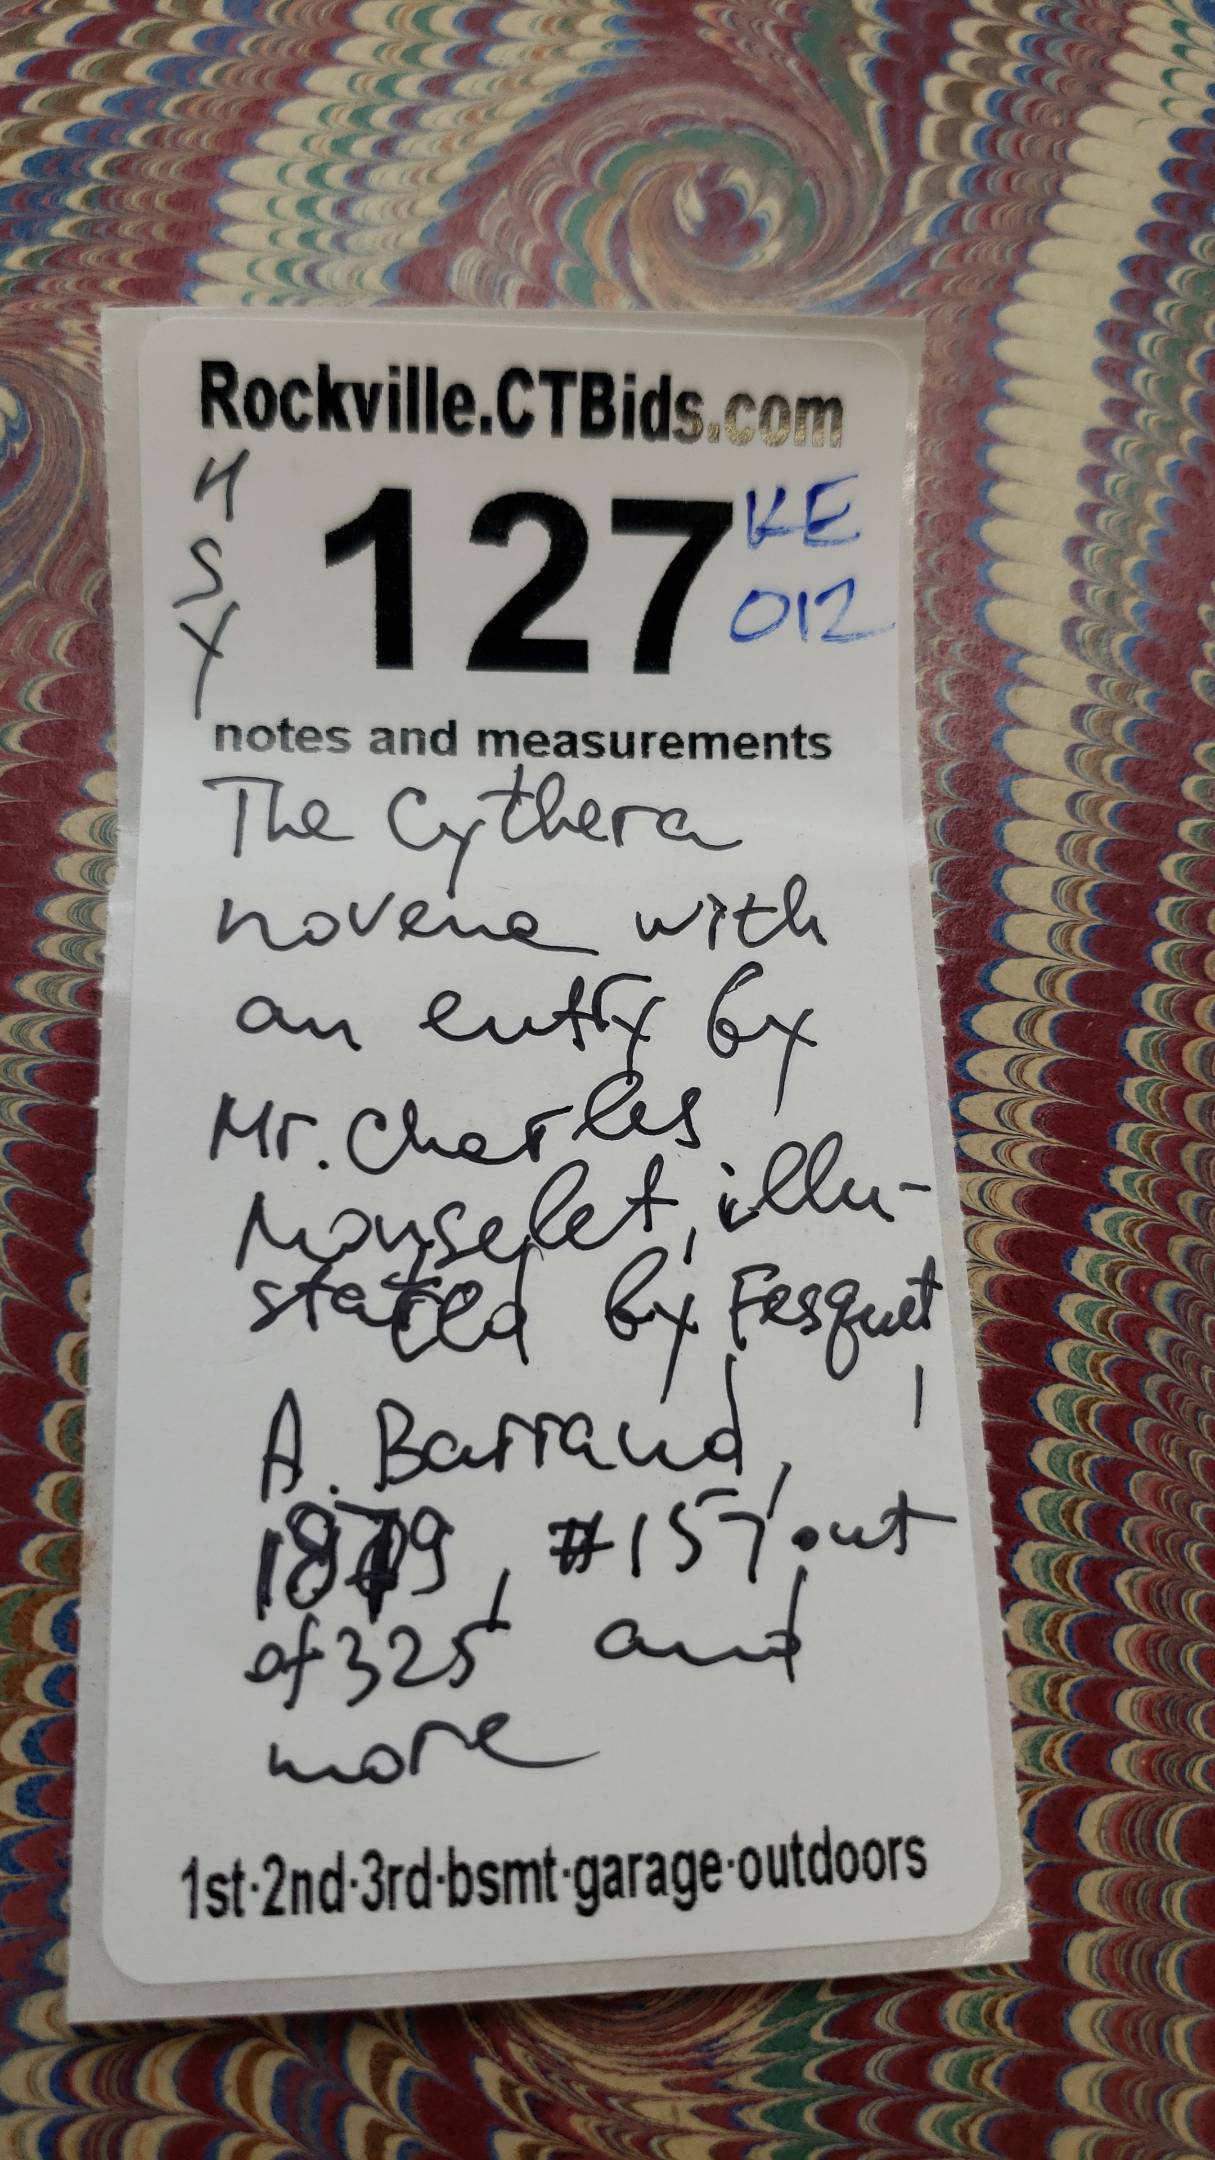 Rockville.CTBids.com
HSY
127
KE
012
notes and measurements
The Cythera
novene with
an entry by
Mr. Charles
Monselet, illu-
strated by Fesquet,
A. Barraud,
1879, #157 out
of 325 and
more
1st·2nd·3rd·bsmt·garage·outdoors